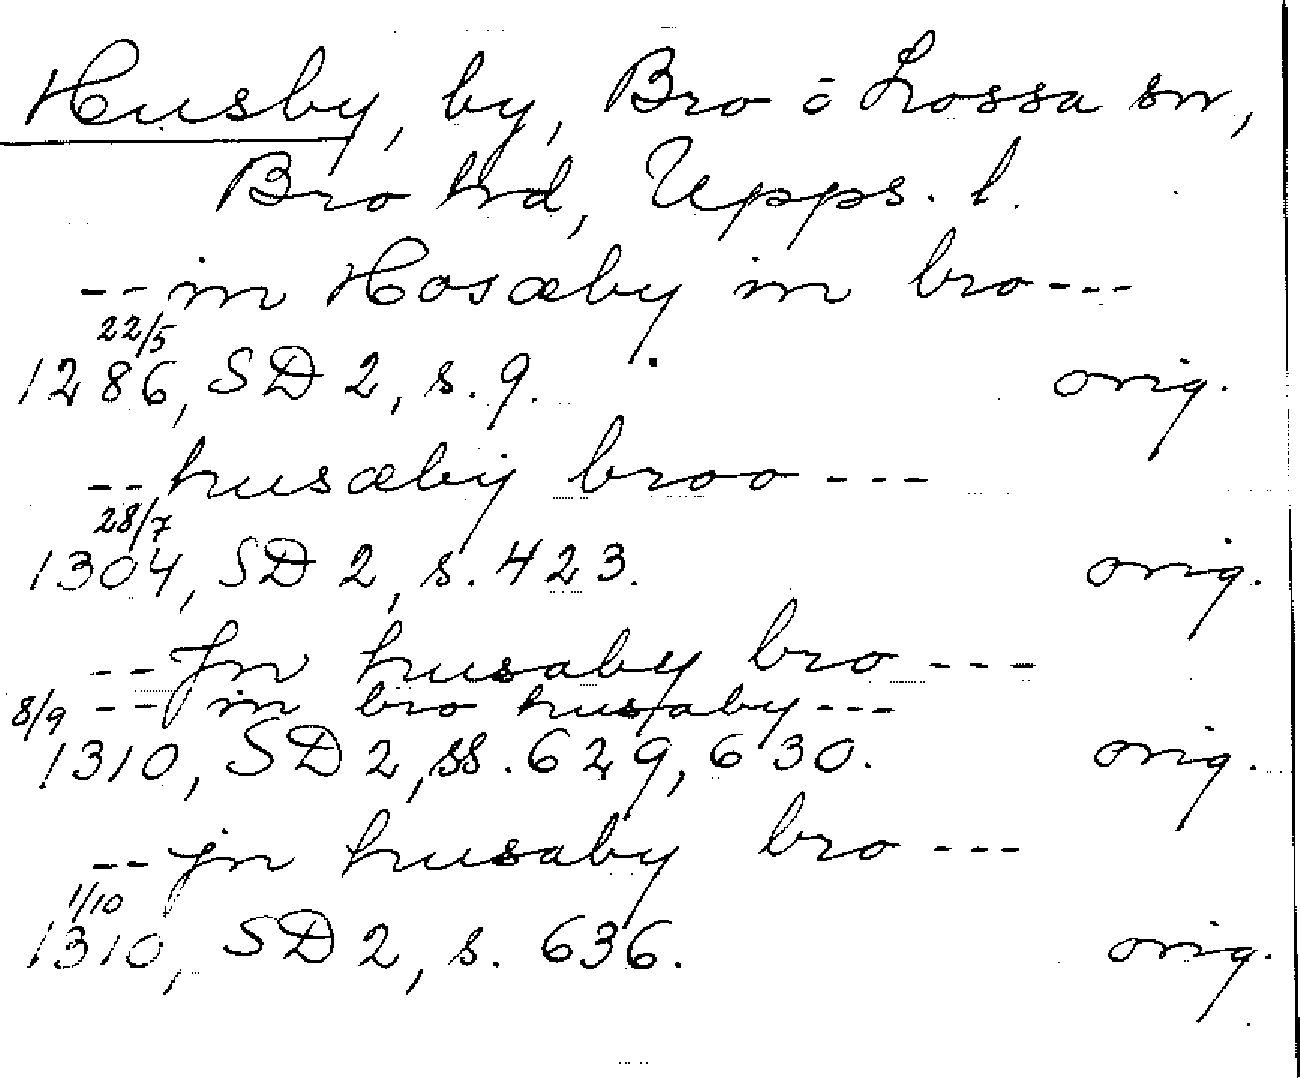 Husby, by, Bro o Lossa sn,
Bro hrd, Upps. l.
--in Hosæby in bro---
22/5
1286, SD 2, s. 9. orig.
--husæby broo---
28/7
1304, SD 2, s. 423. orig.
--Jn husaby bro---
8/9 --in bro husaby---
1310, SD 2, ss. 629, 630. orig.
--jn husaby bro---
1/10
1310, SD 2, s. 636. orig.